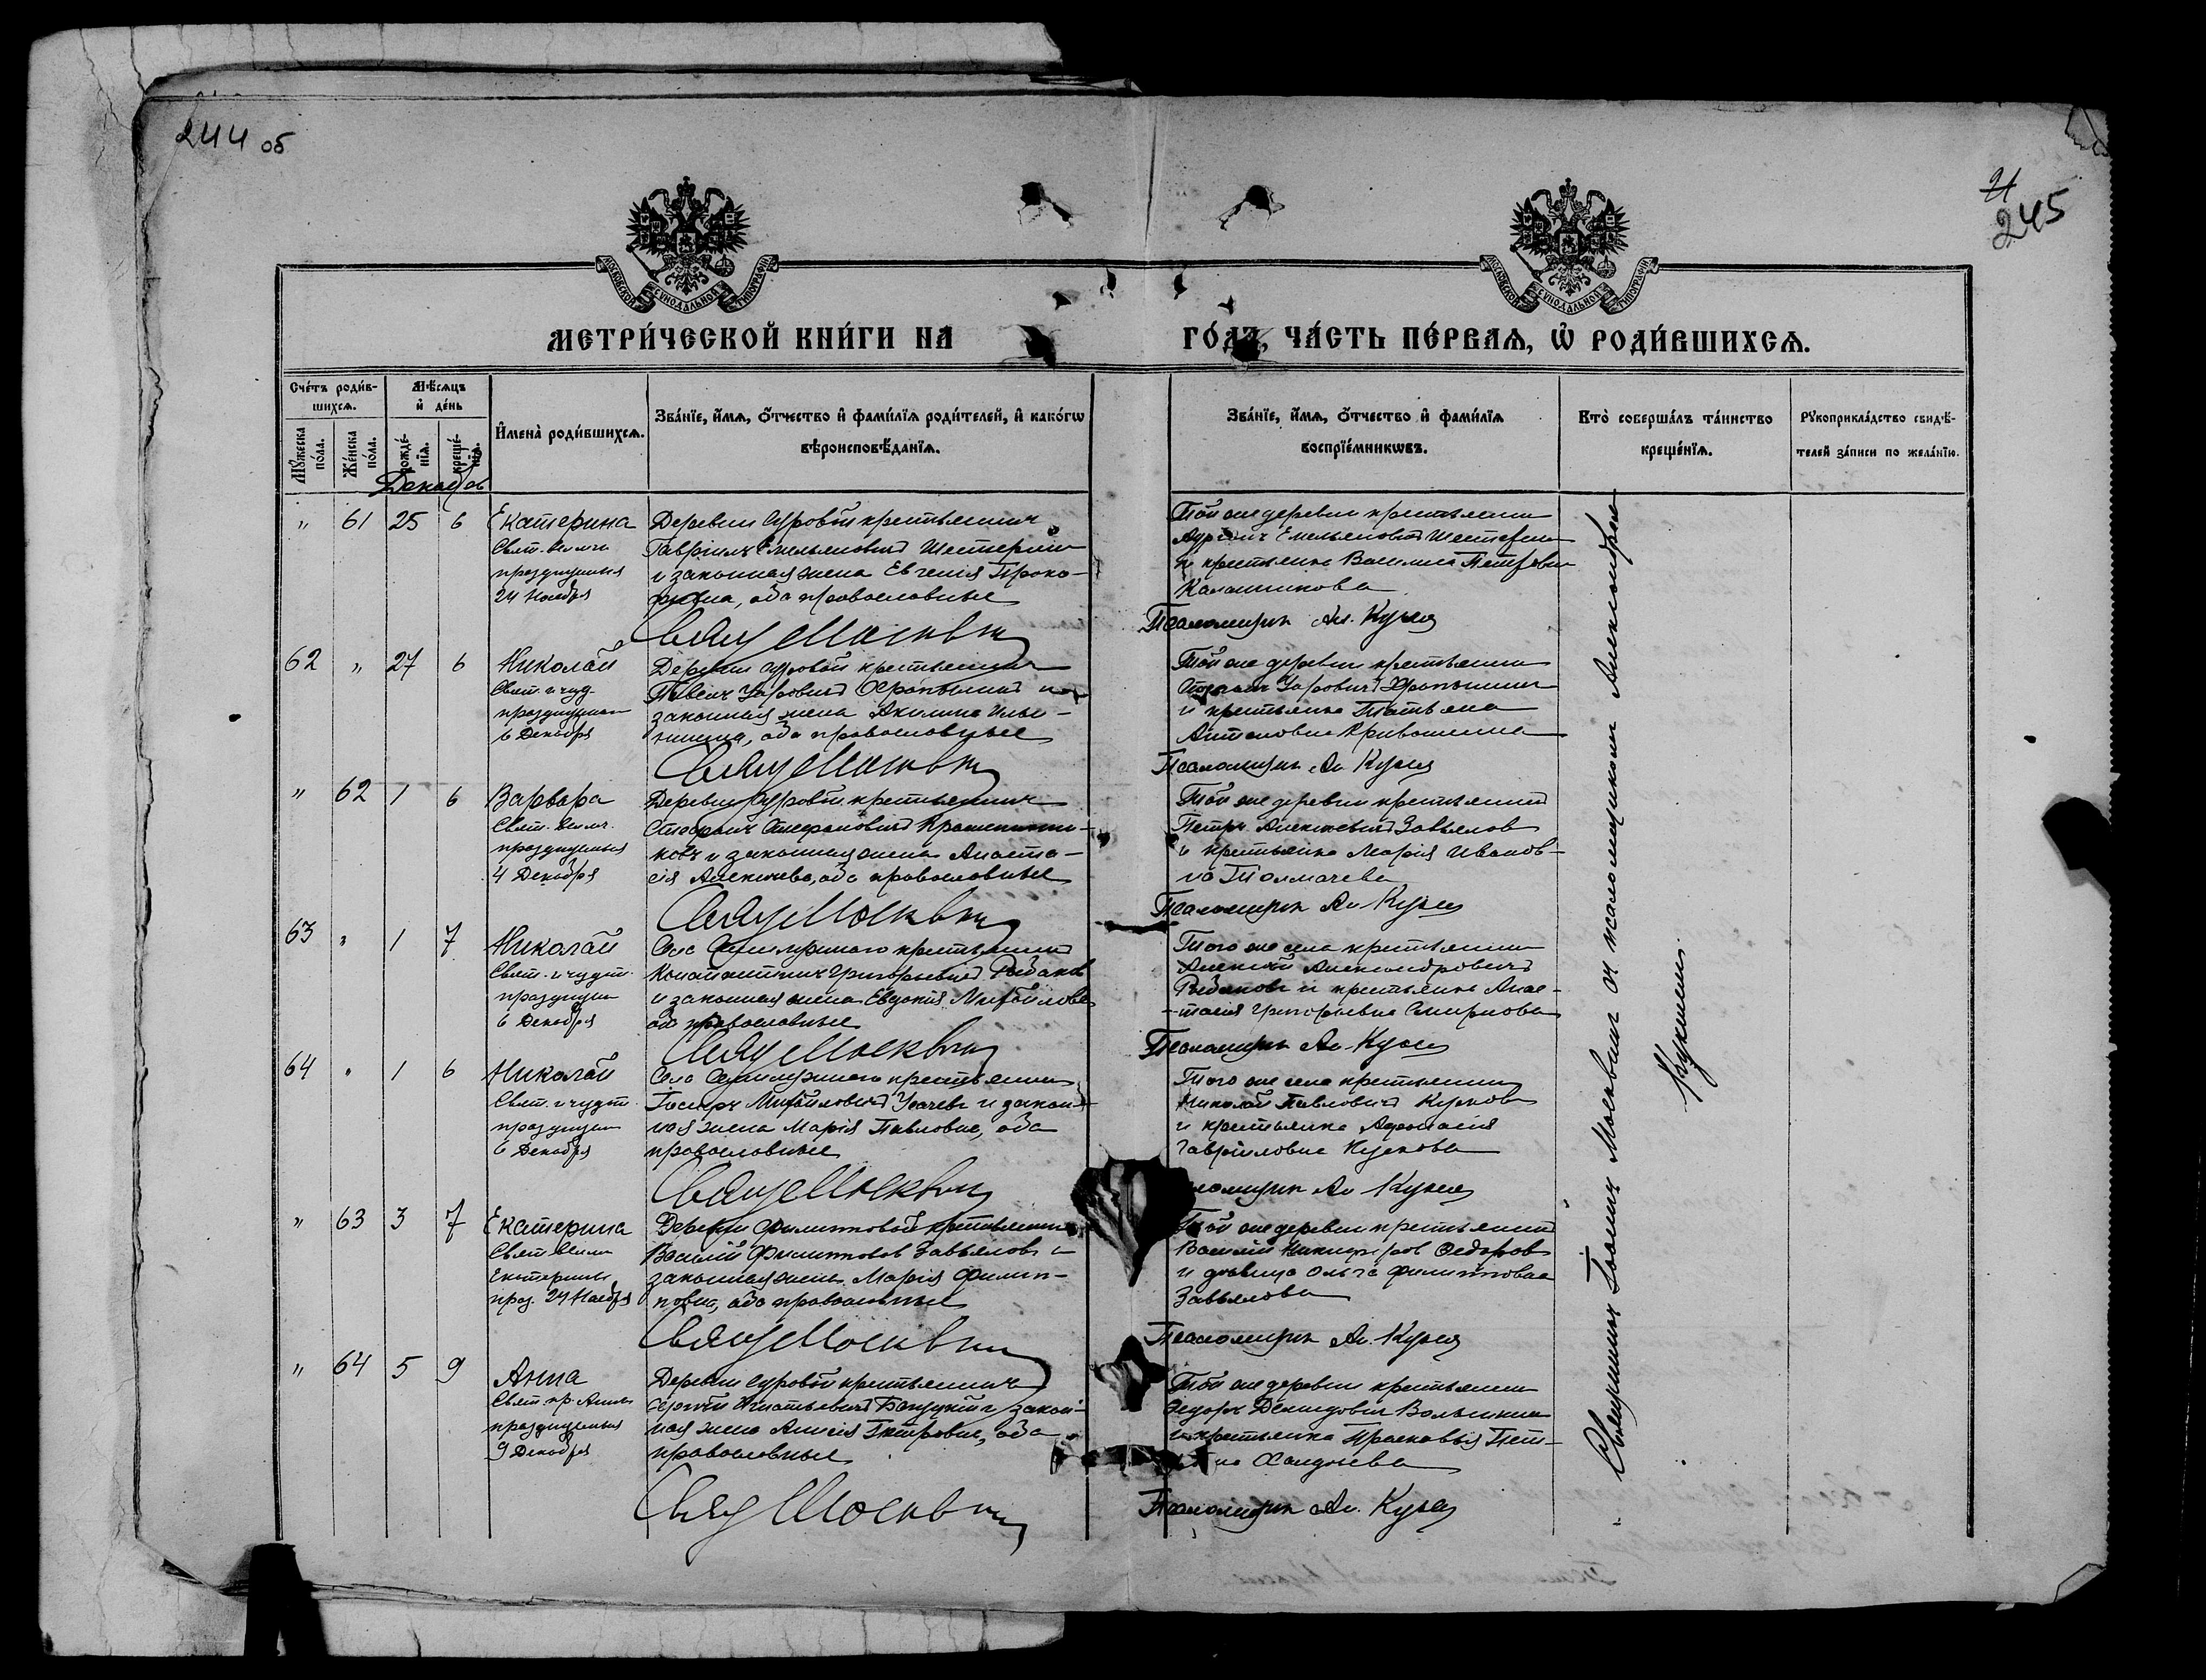 244 об
21
245
МОСКОВСКОЙ СѴНОДАЛЬНОЙ ТИПОГРАФІИ
МОСКОВСКОЙ СѴНОДАЛЬНОЙ ТИПОГРАФІИ
МЕТРИ́ЧЕСКОЙ КНИ́ГИ НА
ГО́ДЪ, ЧА́СТЬ ПЕ́РВАѦ, Ѡ҆ РОДИ́ВШИХСѦ.
Сче́тъ роди́в-
шихсѧ.
Мѣ́сѧцъ
и҆ де́нь
Мꙋ́жеска
по́ла.
Же́нска
по́ла.
рожде́-
нїѧ.
креще́-
нїѧ.
И҆мена̀ роди́вшихсѧ.
Зва́нїе, и҆́мѧ, ѻ҆́тчество и҆ фами́лїѧ роди́телей, и҆ како́гѡ
вѣроисповѣ́данїѧ.
Зва́нїе, и҆́мѧ, ѻ҆́тчество и҆ фами́лїѧ
воспрїе́мникѡвъ.
Кто̀ соверша́лъ та́инство
креще́нїѧ.
Рꙋкоприкла́дство свидѣ́-
телей за́писи по жела́нїю.
Декабрь
" 61 25 6
Екатерина
Свят. Велмч
празднуемыя
24 Ноября
Деревни Суровой крестьянинъ
Гавріилъ Емельяновичъ Шестеринъ
и законная жена Евгенія Проко-
фьевна, оба православные
Той же деревни крестьянин
Емельяновичъ Шестерин
и крестьянка Василиса Петровна
Калашникова
Свящ Москвин
Псаломщик Ал. Кукин
62 " 27 6
Николай
Свят. и чуд.
празднуемаго
6 Декабря
Деревни Суровой крестьянинъ
Уаровичъ Храпыкинъ и
законная жена Акилина Ильи-
нишна, оба православные
Той же деревни крестьянин
Уаровичъ
и крестьянка Татьяна
Антоновна Кривошеина
Свящ Москвин
Псаломщик Ал. Кукин
" 62 1 6
Варвара
Свят. Велмч.
празднуемыя
4 Декабря
Деревни Суровой крестьянинъ
Стефановичъ
ковъ и законная жена Анаста-
сія Алексеева, оба православные
Той же деревни крестьянинъ
Петръ Алексеевичъ Завьялов
и крестьянка Марія Иванов-
на Толмачева
Свящ Москвин
Псаломщик Ал. Кукин
63 " 1 7
Николай
Свят. и чудотв.
празднуем
6 Декабря
Села крестьянинъ
Константинъ Григорьевичъ Рыбаков
и законная жена Евдокія Михайлова
оба православные
Того же села крестьянин
Алексей Александровичъ
Рыбаков и крестьянка Анас-
тасія Григорьевна Смирнова
Свящ Москвин
Псаломщик Ал. Кукин
64 " 1 6
Николай
Свят. и чудотв.
празднуем
6 Декабря
Села крестьянин
Михайловичъ Усачевъ и закон-
ная жена Марія Павловна, оба
православные
Того же села крестьянин
Николай Павлович Курков
и крестьянка Афанасія
Гавриловна Куркова
Свящ Москвин
Ал Кукин
" 63 3 7
Екатерина
Свят. Велм
Екатерины
праз. 24 Ноября
Деревни Филипповой крестьянин
Василій Филиппов Завьялов и
законная жена Марія Филип-
повна, оба православные
Той же деревни крестьянинъ
Василій Федоров
и девица Ольга Филиппова
Завьялова
Свящ Москвин
Псаломщик Ал. Кукин
" 64 5 9
Анна
Свят. пр. Анны
празднуемыя
9 Декабря
Деревни Суровой крестьянинъ
Сергей Игнатьевичъ и закон-
ная жена Анисія Петровна, оба
православные
Той же деревни крестьянин
Федоръ Демидович
и крестьянка Прасковья Пет-
на
Свящ Москвин
Псаломщик Ал. Кукин
Священникъ Москвинъ съ псаломщиком Александром
Кукиным.